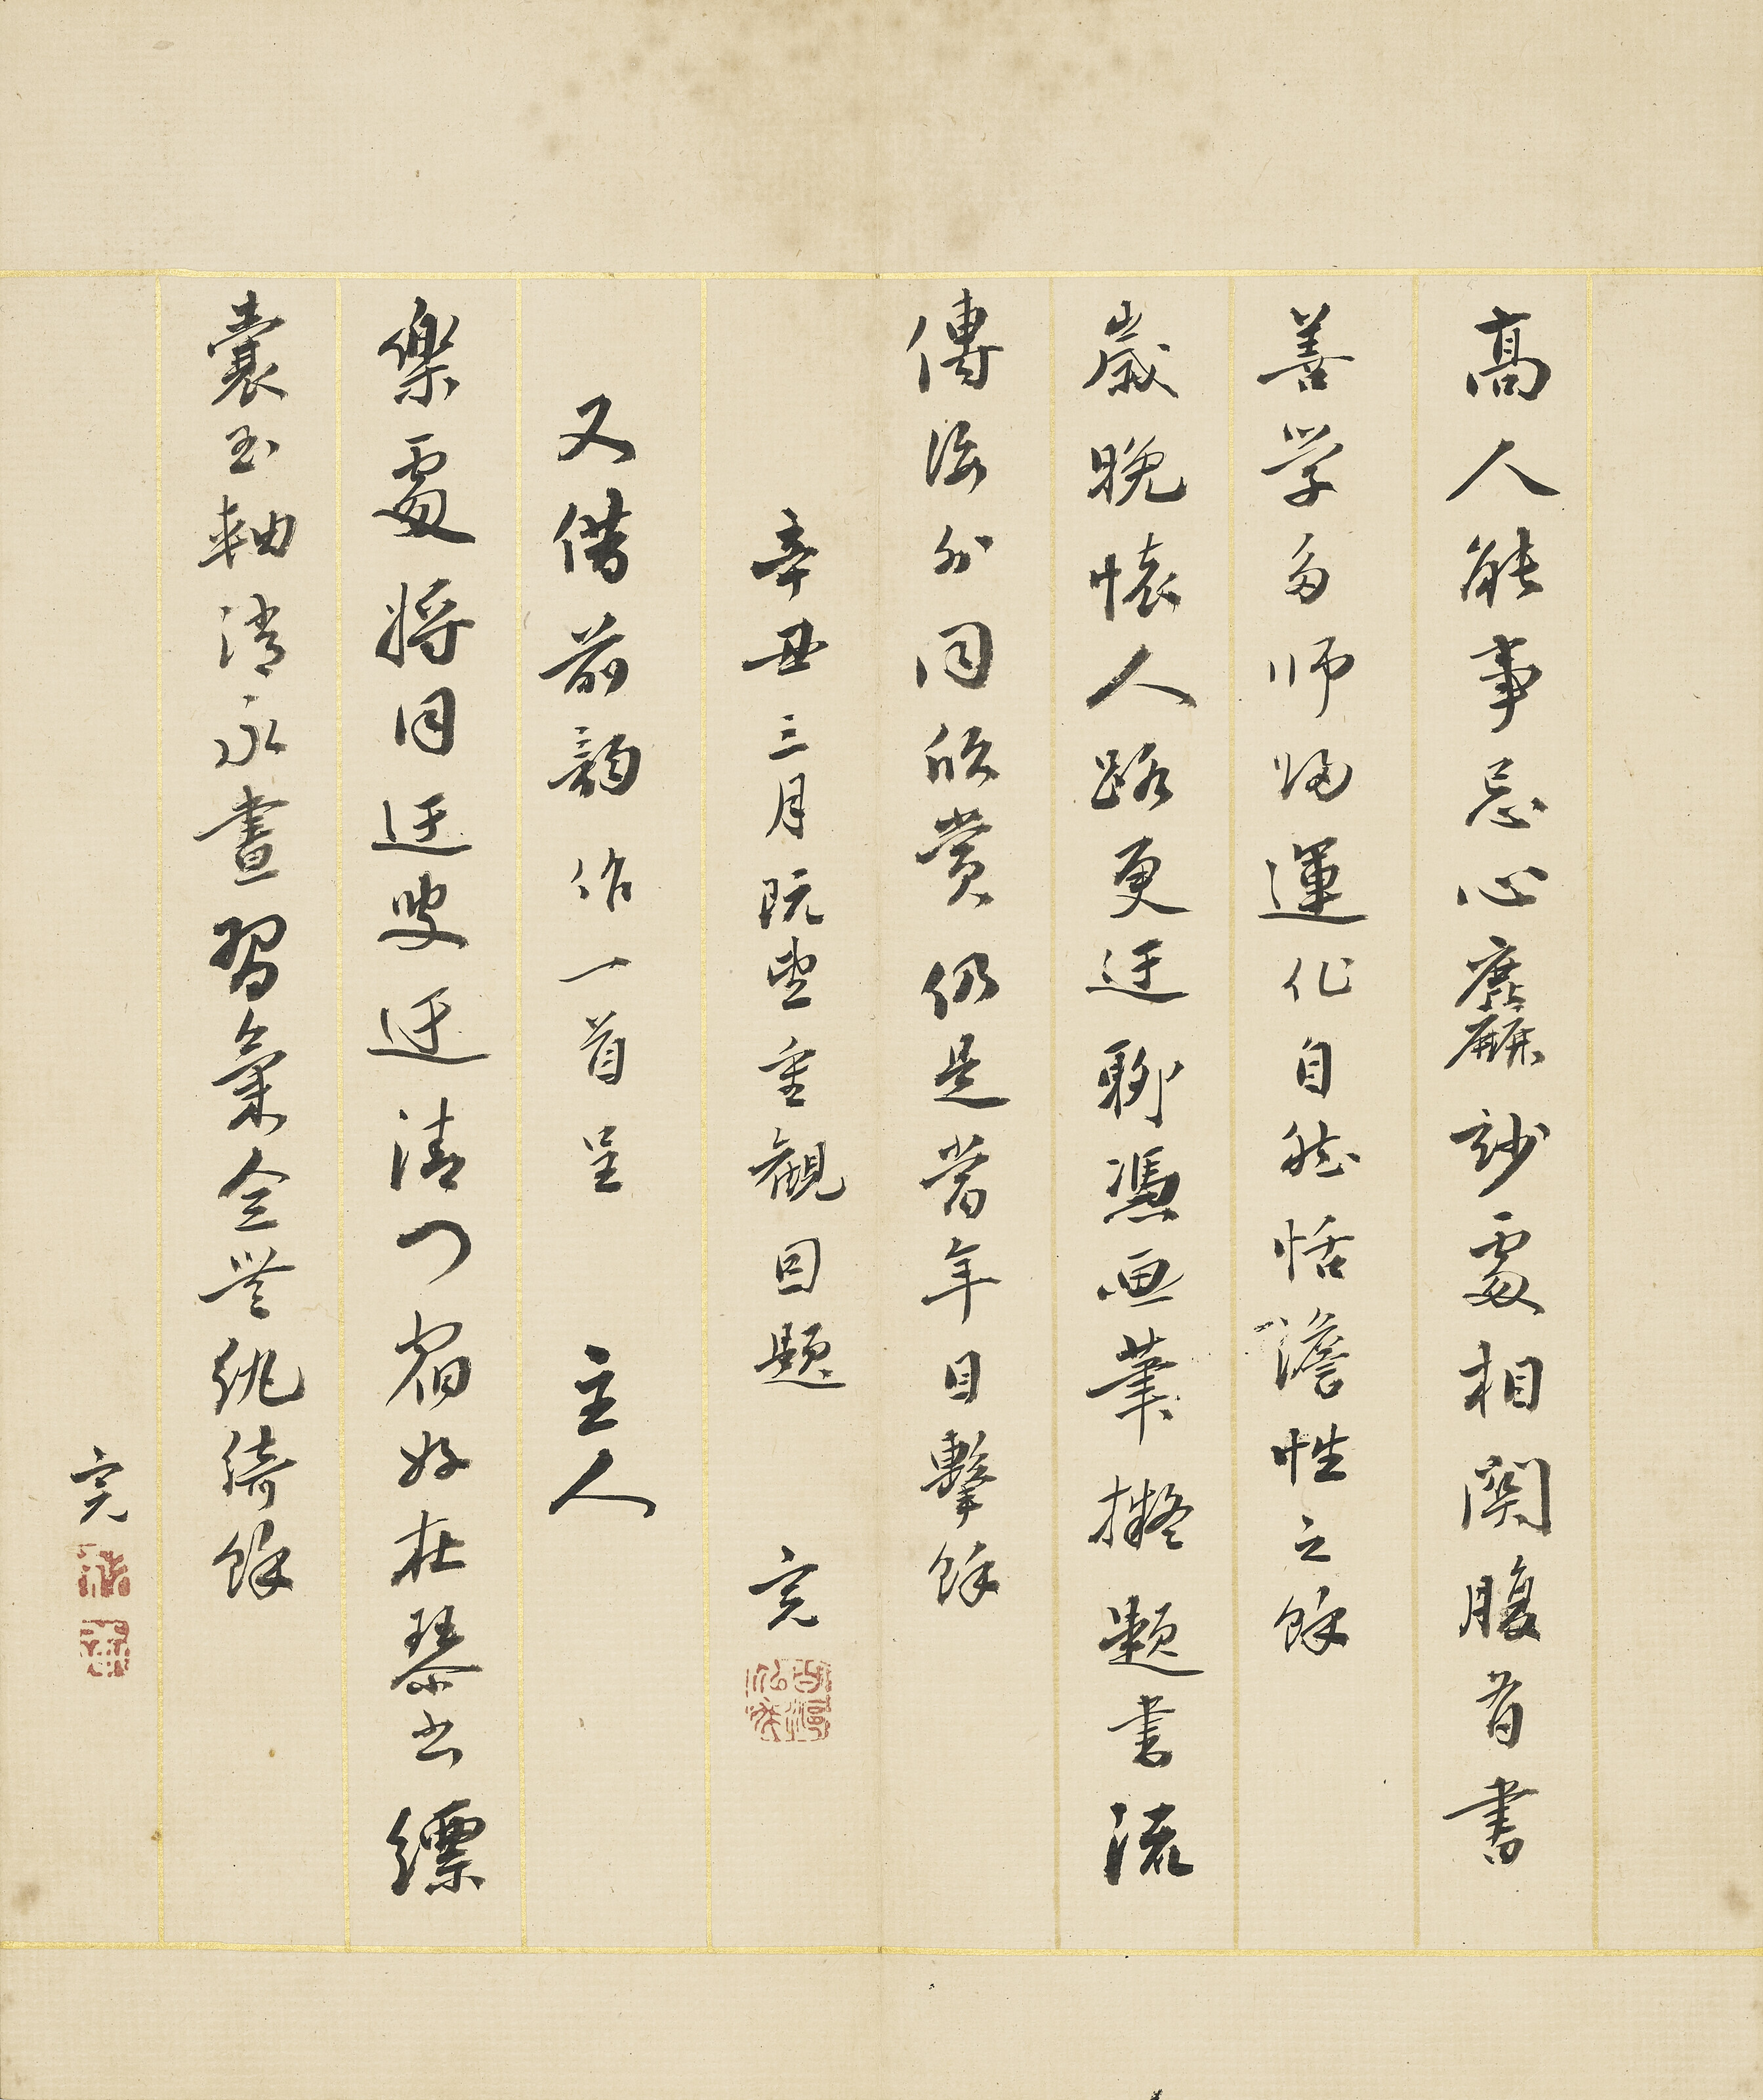 高人能事忌心麤玅處相關腹有書
善学多師歸運化自然恬澹性之餘
歲晚懷人路更迂聊憑画筆擬題書流
傳海外同欣賞仍是昔年目擊餘
辛丑三月既望重觀因題 完
又借前韻作一首呈 主人
樂處將同迂叟迂清門宿好在琴書縹
囊玉軸消永晝習氣全無紈綺餘
完